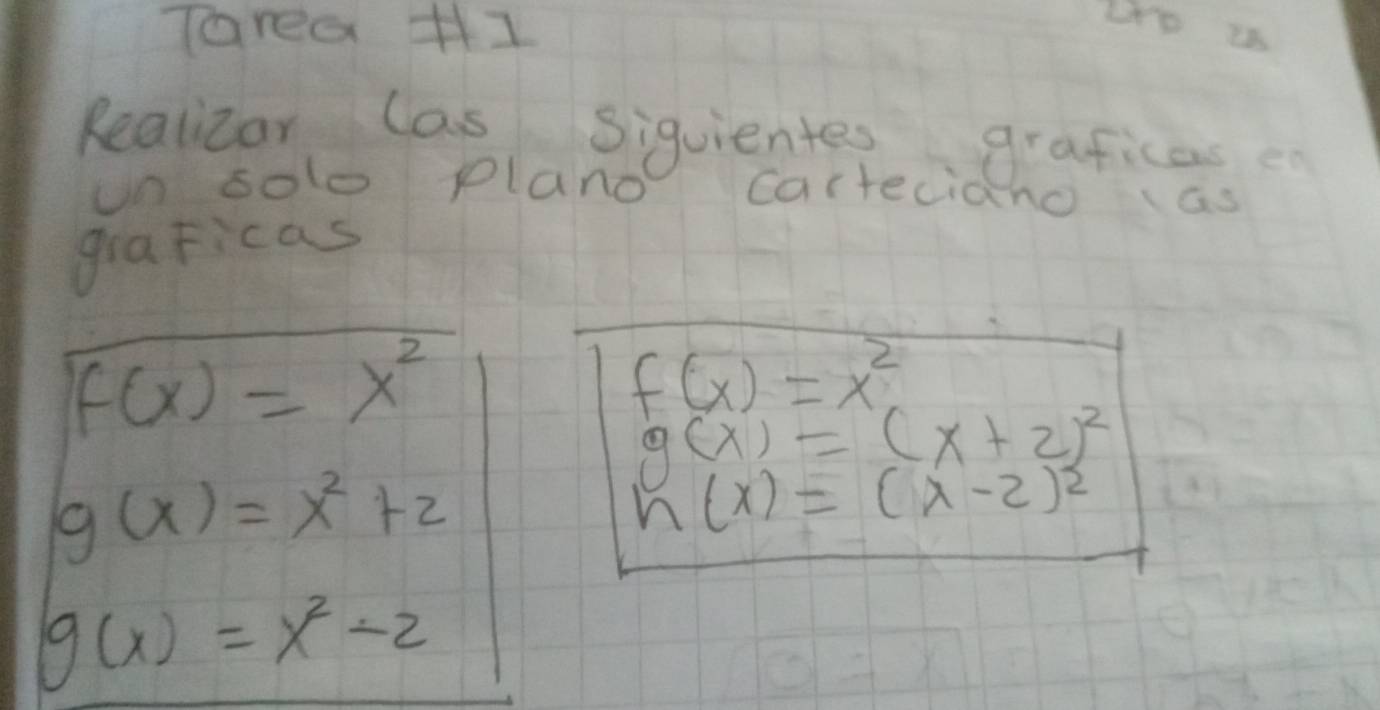 Tarea #1
Realizar las siguientes graficas en
un solo plano carteciano las
graficas
f(x) = x²
g(x) = x² + 2
g(x) = x² - 2
f(x) = x²
g(x) = (x + 2)²
h(x) = (x - 2)²